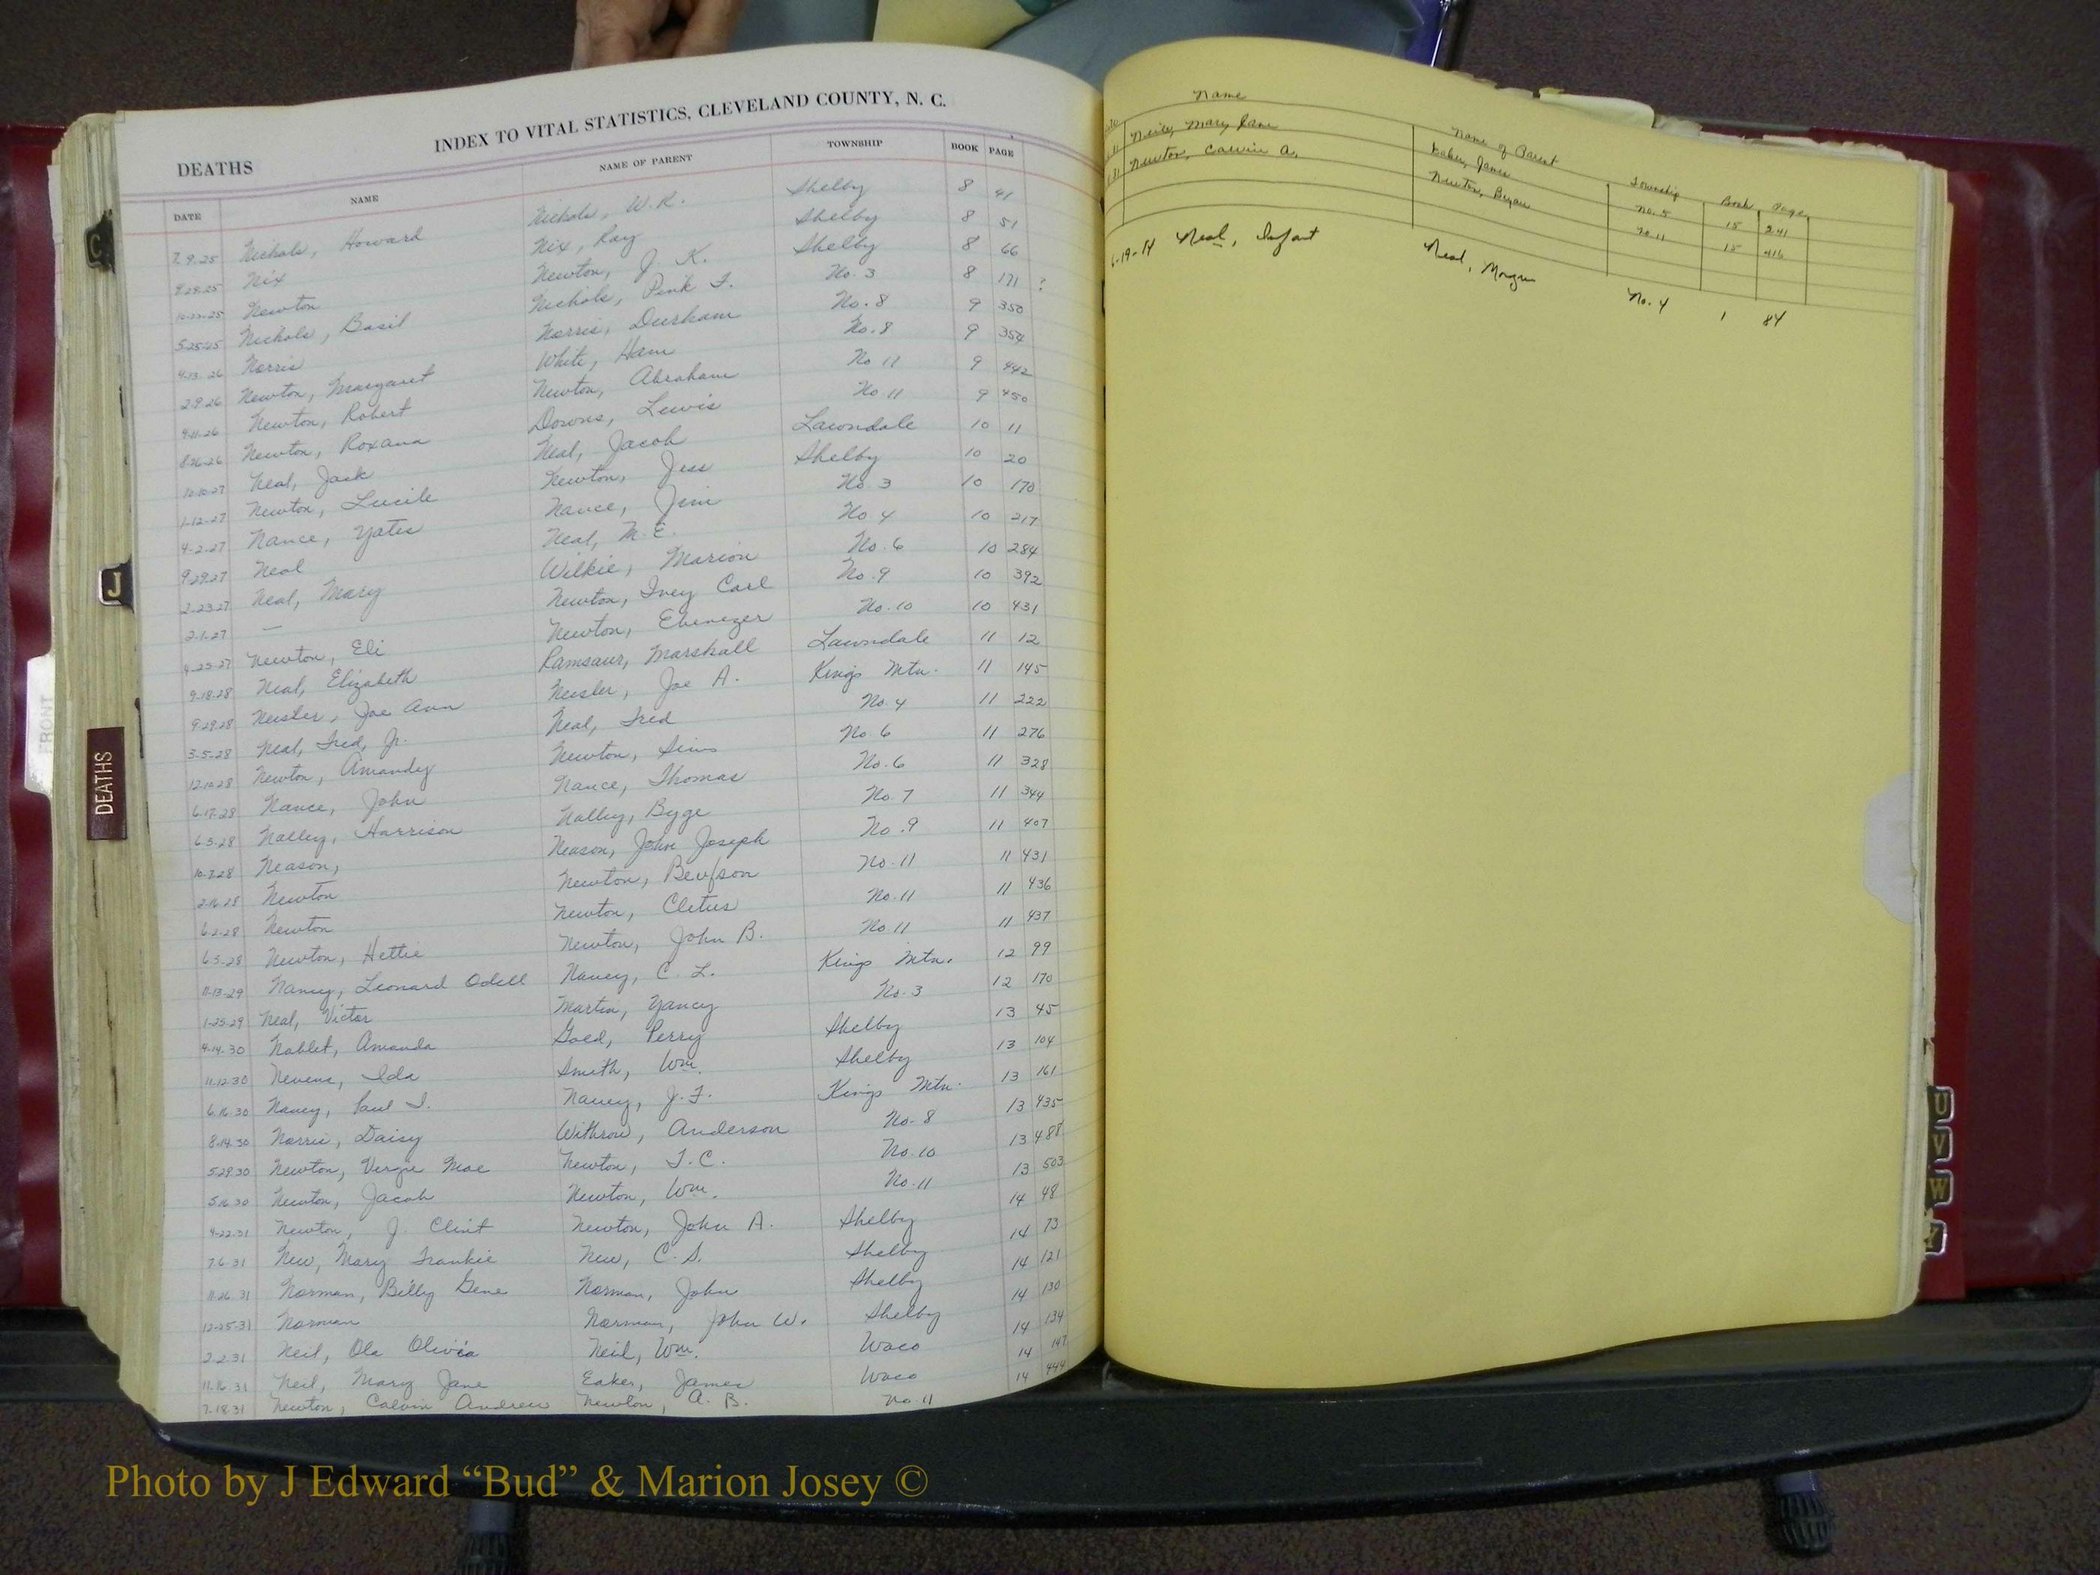 INDEX TO VITAL STATISTICS, CLEVELAND COUNTY, N. C.
DEATHS
DATE NAME NAME OF PARENT TOWNSHIP BOOK PAGE
7.9.25 Nichols, Howard Nichols, W. R. Shelby 8 41
9-28-25 Nix Nix, Ray Shelby 8 51
10-23-25 Newton Newton, J. K. Shelby 8 66
5-25-25 Nichols, Basil Nichols, Pink F. No. 3 8 171 ?
4-13-26 Norris Norris, Durham No. 8 9 350
2-9-26 Newton, Margaret White, Ham No. 8 9 354
9-11-26 Newton, Robert Newton, Abraham No 11 9 442
8-16-26 Newton, Roxana Downs, Lewis No. 11 9 450
10-10-27 Neal, Jack Neal, Jacob Lawndale 10 11
1-12-27 Newton, Lucile Newton, Jess Shelby 10 20
4-2-27 Nance, Yates Nance, Jim No. 3 10 170
9-29-27 Neal Neal, M. E. No 4 10 217
2-23-27 Neal, Mary Wilkie, Marion No. 6 10 284
2-1-27 — Newton, Ivey Carl No. 9 10 392
4-25-27 Newton, Eli Newton, Ebenezer No. 10 10 431
9-18-28 Neal, Elizabeth Ramsaur, Marshall Lawndale 11 12
9-29-28 Neisler, Joe Ann Neisler, Joe A. Kings Mtn. 11 145
3-5-28 Neal, Fred, Jr. Neal, Fred No. 4 11 222
12-10-28 Newton, Amandy Newton, Sims No 6 11 276
6-17-28 Nance, John Nance, Thomas No. 6 11 328
6-5-28 Nalley, Harrison Nalley, Byge No. 7 11 344
10-7-28 Neason, Neason, John Joseph No. 9 11 407
2-16-28 Newton Newton, No. 11 11 431
6-2-28 Newton Newton, Cletus No. 11 11 436
6-5-28 Newton, Hettie Newton, John B. No 11 11 437
11-13-29 Nancy, Leonard Odell Nancy, C. L. Kings Mtn. 12 99
1-25-29 Neal, Victor Martin, Yancy No. 3 12 170
4-14-30 Noblet, Amanda Goed, Perry Shelby 13 45
11-12-30 Nevens, Ida Smith, Wm. Shelby 13 104
6-16-30 Nancy, Paul I. Nancy, J. F. Kings Mtn. 13 161
8-14-30 Norris, Daisy Withrow, Anderson No. 8 13 435
5-29-30 Newton, Vergie Mae Newton, T. C. No. 10 13 488
5-16-30 Newton, Jacob Newton, Wm. No. 11 13 503
4-22-31 Newton, J. Clint Newton, John A. Shelby 14 48
7-6-31 New, Mary Frankie New, C. S. Shelby 14 73
11-26-31 Norman, Billy Gene Norman, John Shelby 14 121
12-25-31 Norman Norman, John W. Shelby 14 130
2-2-31 Neil, Ola Olivia Neil, Wm. Waco 14 134
11-16-31 Neil, Mary Jane Eaker, James Waco 14 147
7-18-31 Newton, Calvin Andrew Newton, A. B. No 11 14 444
Name Name of Parent Township Book Page
Mary Jane Eaker, James No. 5 15 241
Newton, Calvin A. Newton, Bryan No. 11 15 416
6-19-14 Neal, Infant Neal, Morgan No. 4 1 84
C
J
FRONT
DEATHS
U
V
W
Y
Photo by J Edward “Bud” & Marion Josey ©